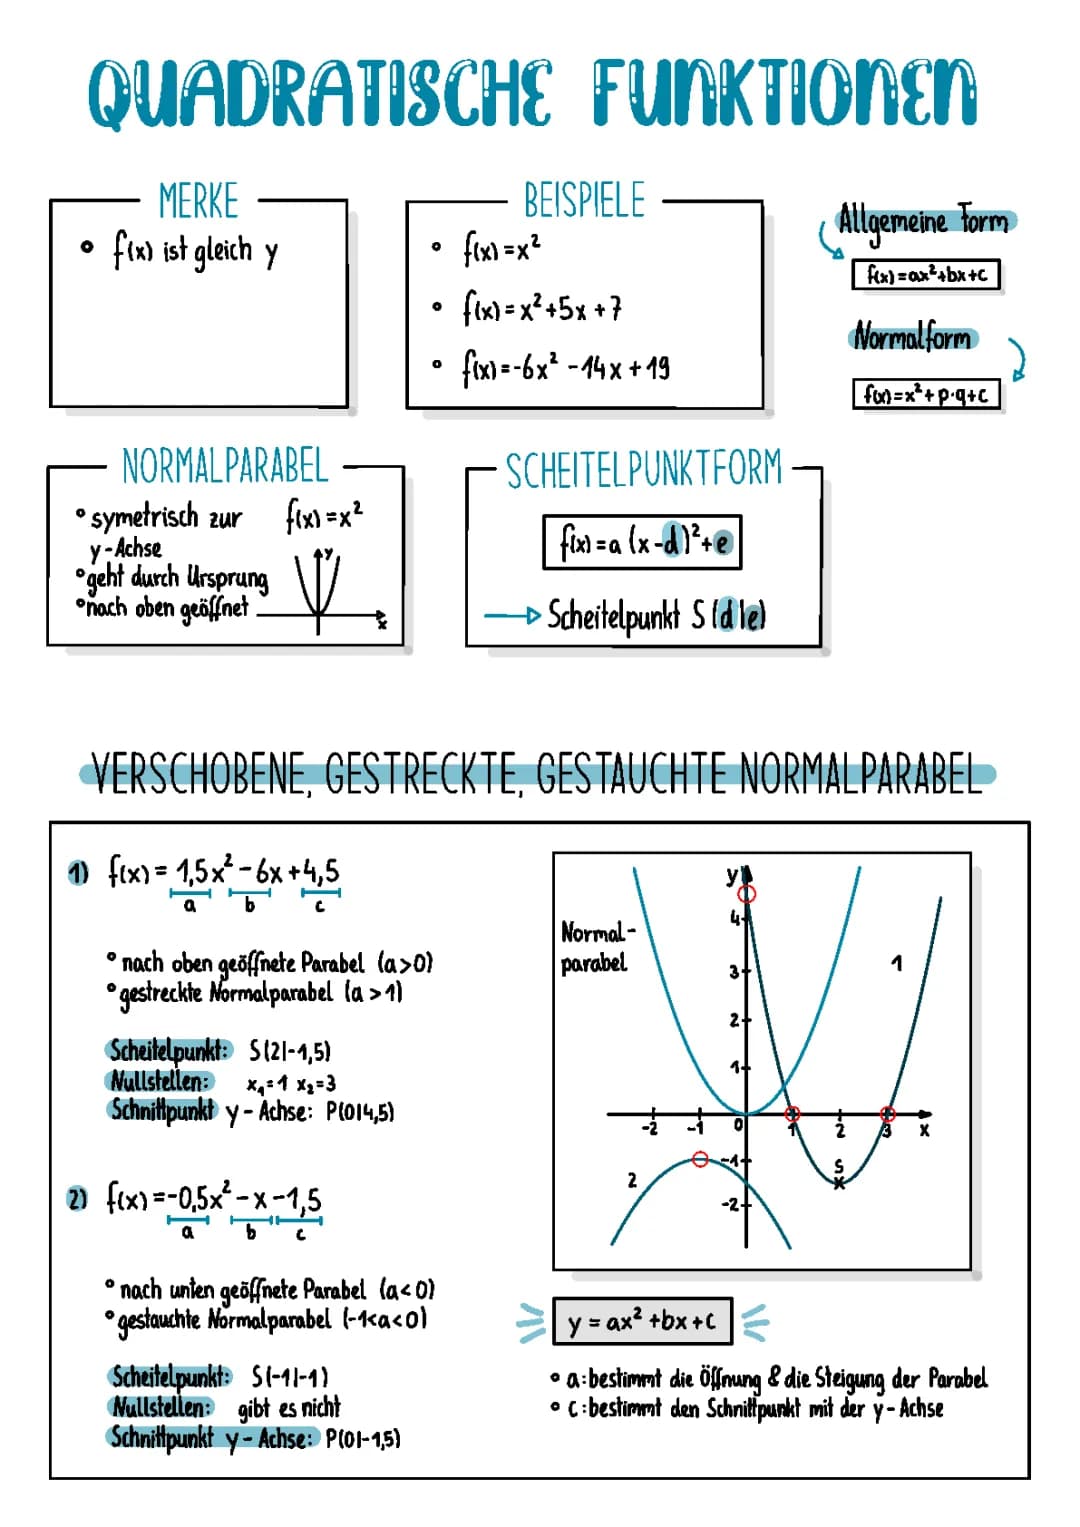 QUADRATISCHE FUNKTIONEN
MERKE
• f(x) ist gleich y
BEISPIELE
• f(x)=x²
• f(x)=x²+5x+7
• f(x)=-6x²-14x+19
Allgemeine Form
f(x)=ax²+bx+c
Normalform
f(x)=x²+p·q+c
NORMALPARABEL
• symetrisch zur
y-Achse
• geht durch Ursprung
• nach oben geöffnet
f(x)=x²
y
x
SCHEITELPUNKTFORM
f(x)=a(x-d)²+e
→ Scheitelpunkt S(d|e)
VERSCHOBENE, GESTRECKTE, GESTAUCHTE NORMALPARABEL
1) f(x)=1,5x²-6x+4,5
a b c
• nach oben geöffnete Parabel (a>0)
• gestreckte Normalparabel (a>1)
Scheitelpunkt: S(2|-1,5)
Nullstellen: x₁=1 x₂=3
Schnittpunkt y-Achse: P(0|4,5)
2) f(x)=-0,5x²-x-1,5
a b c
• nach unten geöffnete Parabel (a<0)
• gestauchte Normalparabel (-1<a<0)
Scheitelpunkt: S(-1|-1)
Nullstellen: gibt es nicht
Schnittpunkt y-Achse: P(0|-1,5)
y
4
Normal-
parabel
3
1
2
1
-2 -1 0 1 2 3 x
-1
S
2
-2
y=ax²+bx+c
• a: bestimmt die Öffnung & die Steigung der Parabel
• c: bestimmt den Schnittpunkt mit der y-Achse